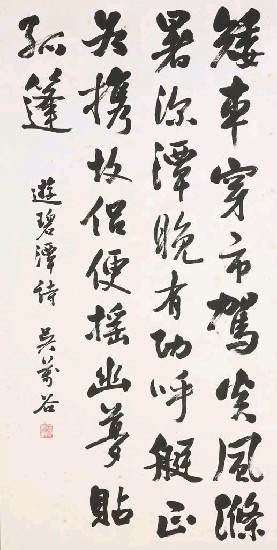 矮車穿市駕炎風滌
暑深潭晚有功呼艇正
為携故侶便搖幽夢貼
孤篷
遊碧潭詩 吳萬谷